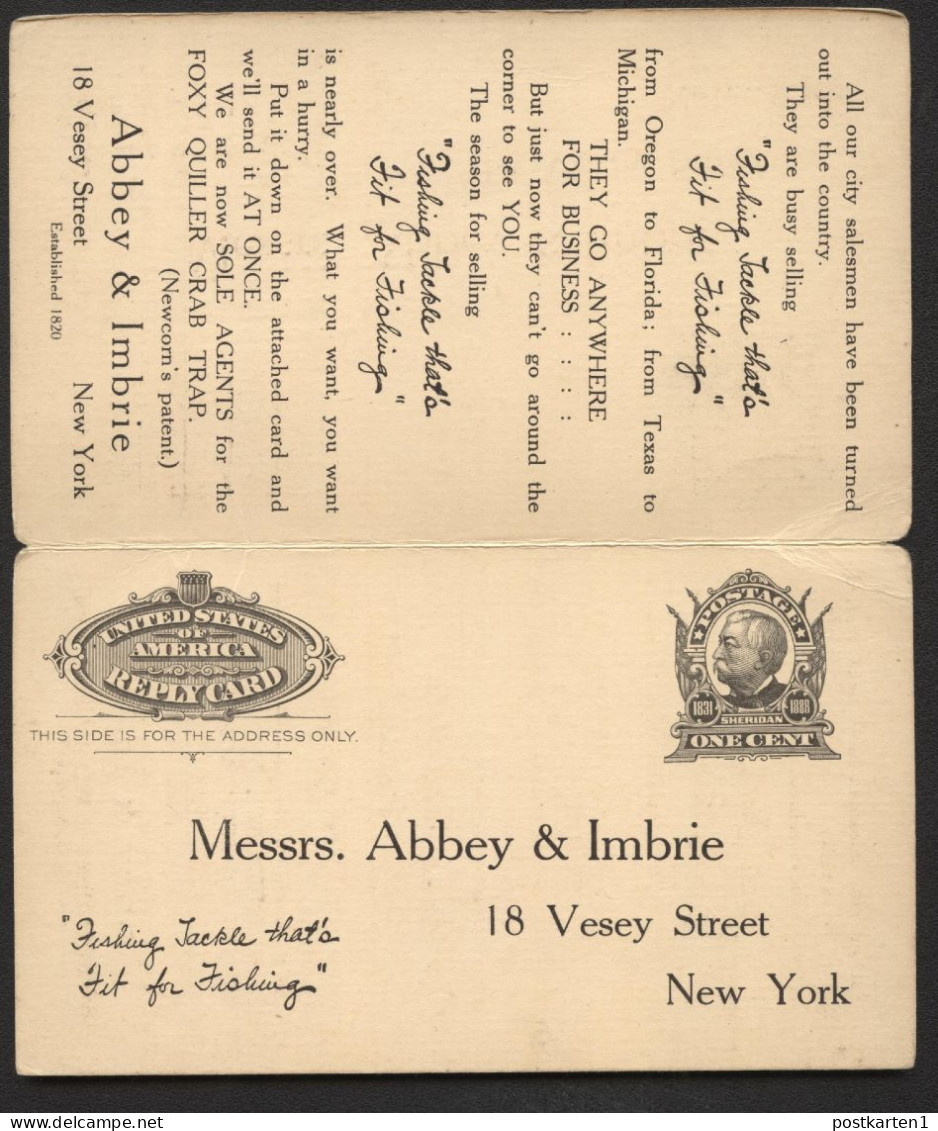 All our city salesmen have been turned
out into the country.
They are busy selling
"Fishing Tackle that's
Fit for Fishing"
from Oregon to Florida; from Texas to
Michigan.
THEY GO ANYWHERE
FOR BUSINESS : : : :
But just now they can't go around the
corner to see YOU.
The season for selling
"Fishing Tackle that's
Fit for Fishing"
is nearly over. What you want, you want
in a hurry.
Put it down on the attached card and
we'll send it AT ONCE.
We are now SOLE AGENTS for the
FOXY QUILLER CRAB TRAP.
(Newcorn's patent.)
Abbey & Imbrie
18 Vesey Street New York
Established 1820
UNITED STATES
OF
AMERICA
REPLY CARD
THIS SIDE IS FOR THE ADDRESS ONLY.
POSTAGE
1831 1888
SHERIDAN
ONE CENT
Messrs. Abbey & Imbrie
18 Vesey Street
New York
"Fishing Tackle that's
Fit for Fishing"
postkarten1